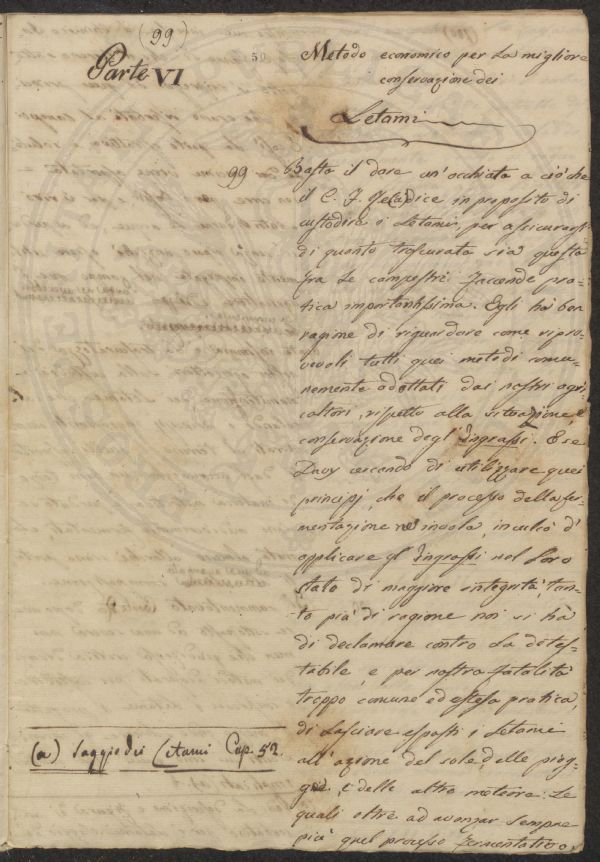 (99)
Parte VI
50
Metodo economico per la migliore
conservazione dei
Letami
99 Basta il dare un'occhiata a ciò che
il C. F. Re (a) dice in proposito di
custodire i Letami, per assicurarsi
di quanto trascurata sia questa
fra le campestri faccende pra-
tica importantissima. Egli ha ben
ragione di riguardare come ripro-
vevoli tutti quei metodi comu-
nemente adottati dai nostri agri-
coltori, rispetto alla situazione, e
conservazione degl'Ingrassi. E se
Davy cercando di utilizzare quei
principj, che il processo della fer-
mentazione ne invola, inculcò d'
applicare gl'Ingrassi nel loro
stato di maggiore integrità, tan-
to più di ragione noi si hà
di declamare contro la detes-
tabile, e per nostra fatalità
troppo comune ed estesa pratica,
di lasciare esposti i Letami
all'azione del sole, delle piog-
gie, e delle altre meteore. Le
quali oltre ad avanzar sempre
più quel processo fermentativo,
(a) Saggio dei Letami Cap. 52.